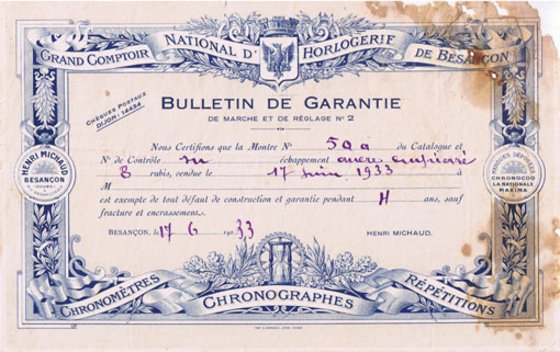 GRAND COMPTOIR NATIONAL D'HORLOGERIE DE BESANÇON
CHÈQUES POSTAUX
DIJON: 14434
BULLETIN DE GARANTIE
DE MARCHE ET DE RÉGLAGE Nº 2
Nous Certifions que la Montre Nº 500 du Catalogue et
Nº de Contrôle échappement ancre
8 rubis, vendue le 17 juin 1933 à
M
est exempte de tout défaut de construction et garantie pendant ans, sauf
fracture et encrassement.
BESANÇON, le 17 6 1933 HENRI MICHAUD.
HENRI MICHAUD
BESANÇON
(DOUBS)
MARQUES DÉPOSÉES
CHRONOCOO
LA RATIONALE
MAXIMA
CHRONOMÈTRES
CHRONOGRAPHES
RÉPÉTITIONS